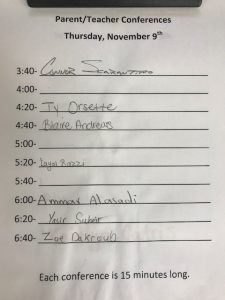 Parent/Teacher Conferences
Thursday, November 9th
3:40-
4:00-
4:20- Ty Orsette
4:40- Blaire Andrews
5:00-
5:20-
5:40-
6:00- Ammar Alasadi
6:20-
6:40- Zoe Dakroub
Each conference is 15 minutes long.